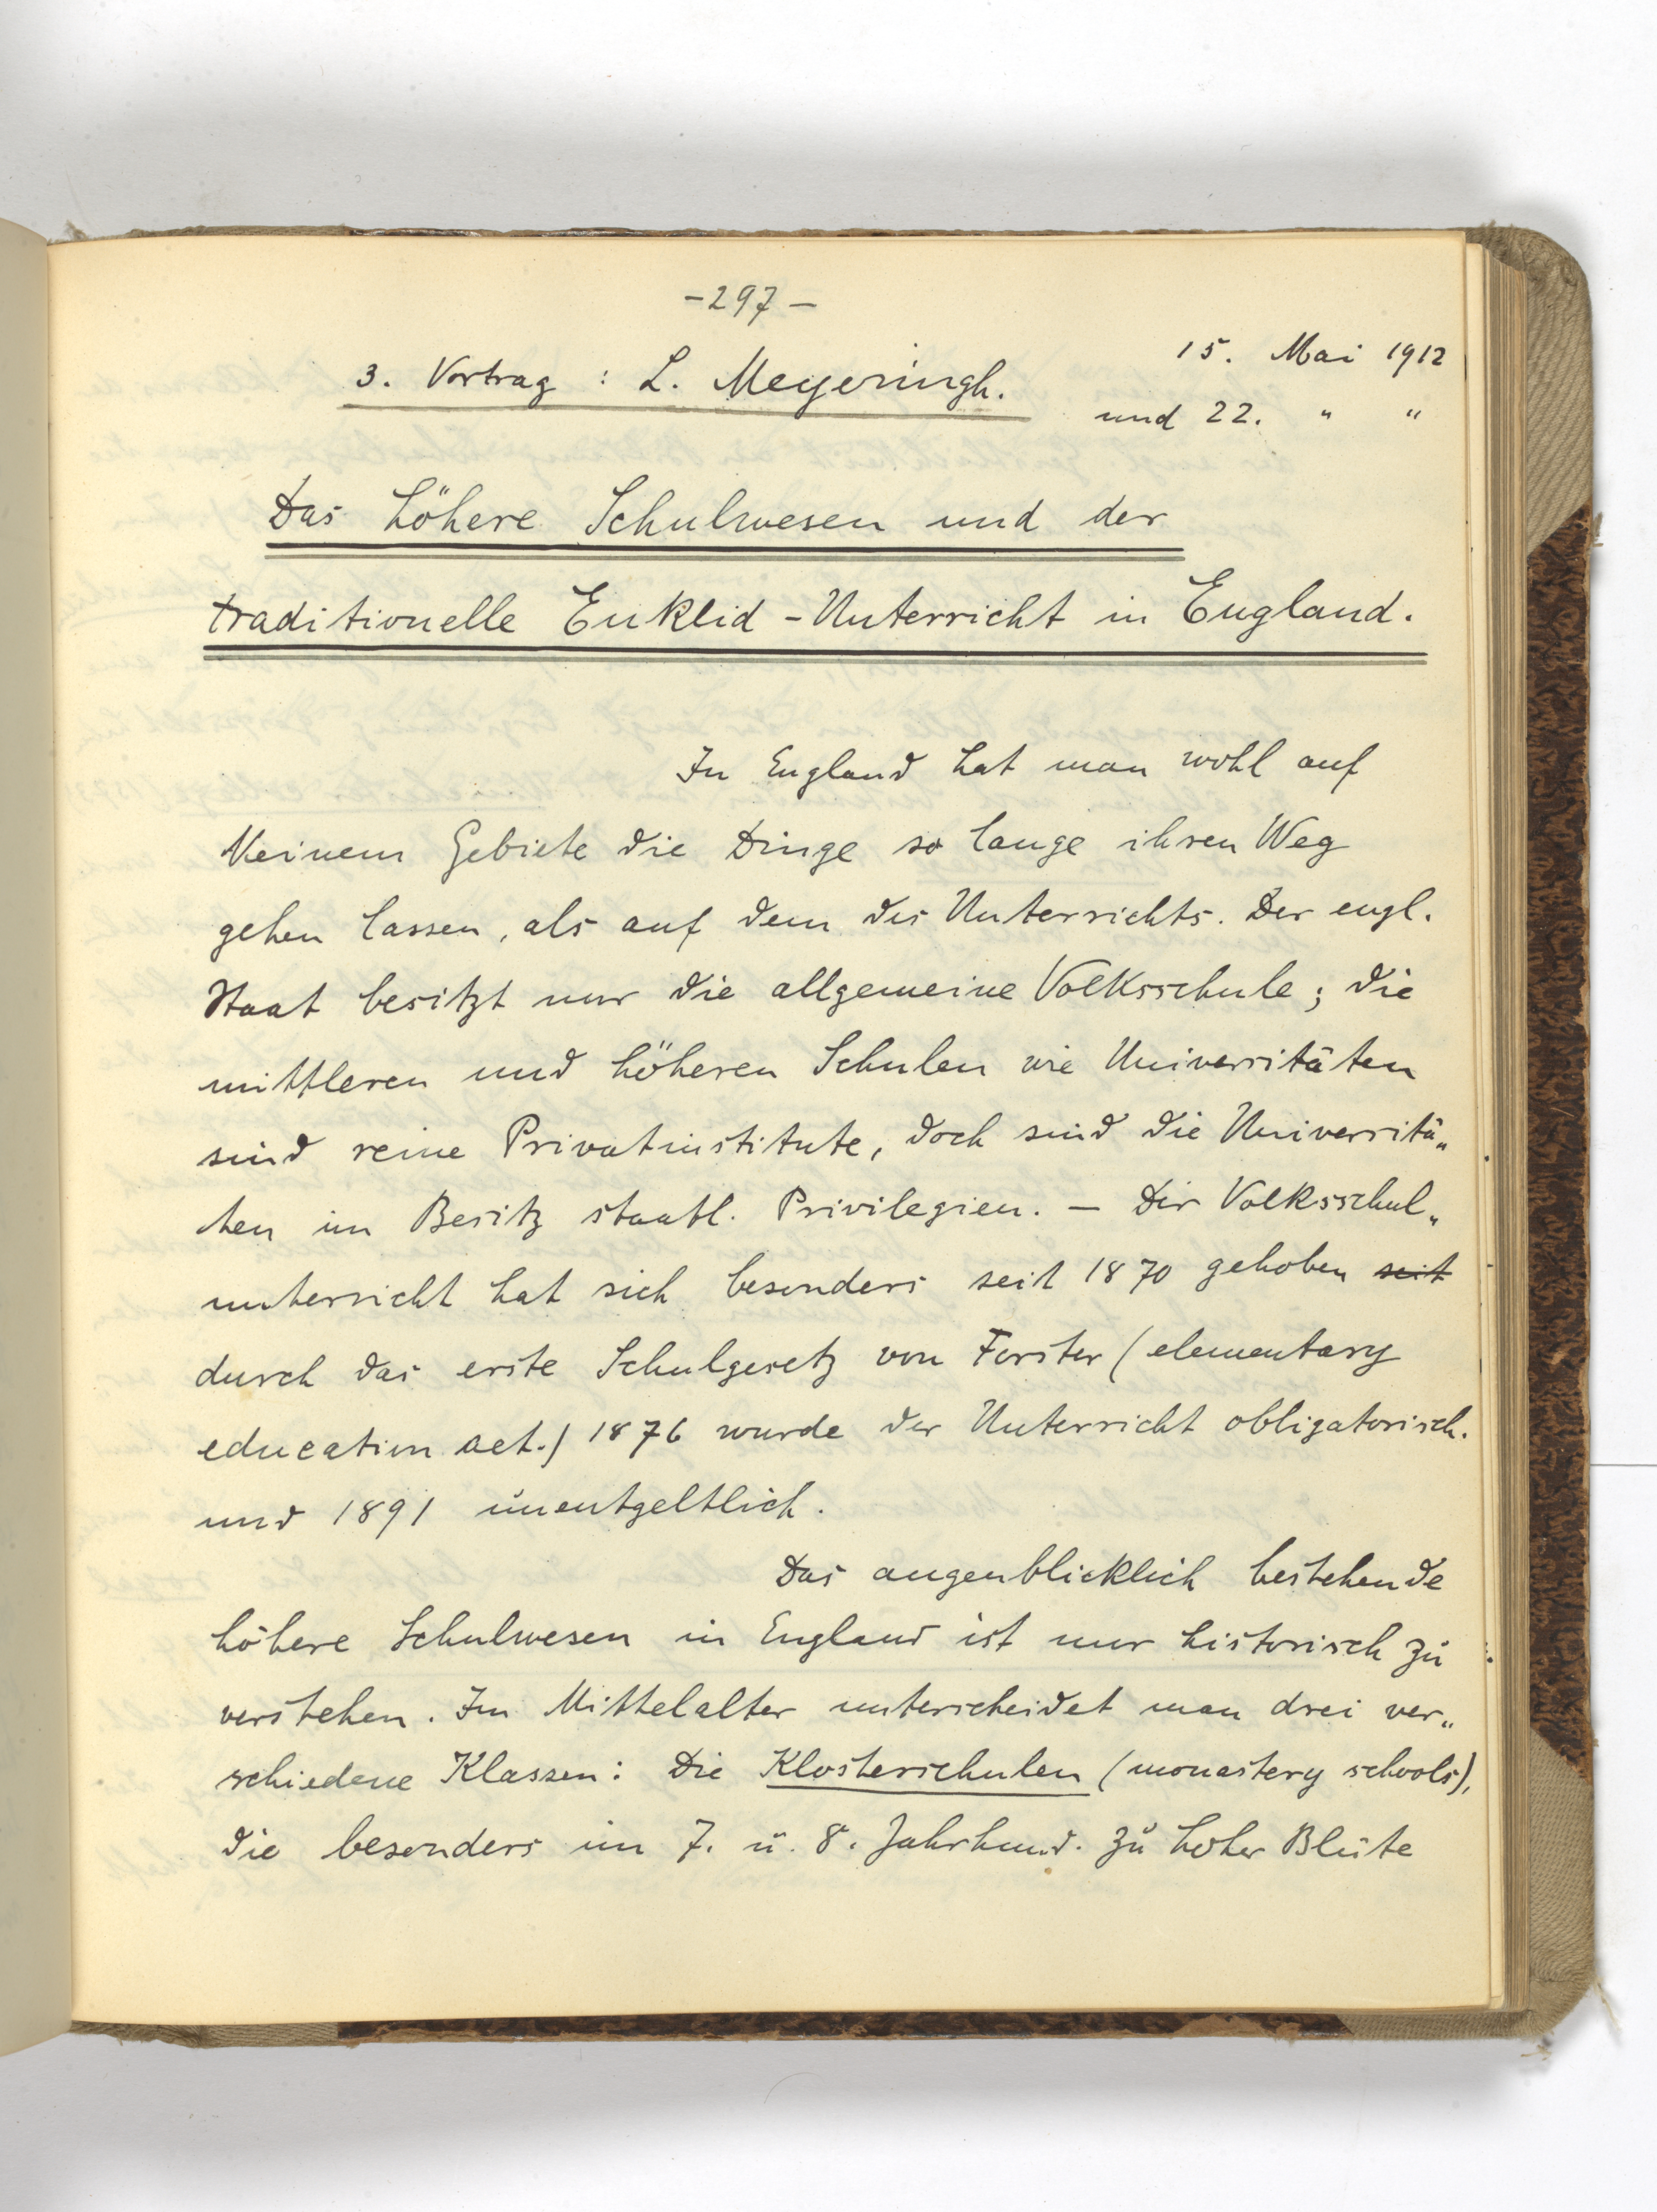 - 297 -
15. Mai 1912
3. Vortrag : L. Meyeringh.
und 22. " "
Das höhere Schulwesen und der
traditionelle Euklid - Unterricht in England.
In England hat man wohl auf
keinem Gebiete die Dinge so lange ihren Weg
gehen lassen, als auf dem des Unterrichts. Der engl.
Staat besitzt nur die allgemeine Volksschule; die
mittleren und höheren Schulen wie Universitäten
sind reine Privatinstitute, doch sind die Universitä„
ten im Besitz staatl. Privilegien. — Der Volksschul„
unterricht hat sich besonders seit 1870 gehoben seit
durch das erste Schulgesetz von Forster (elementary
education act.) 1876 wurde der Unterricht obligatorisch.
und 1891 unentgeltlich.
Das augenblicklich bestehende
höhere Schulwesen in England ist nur historisch zu
verstehen. Im Mittelalter unterscheidet man drei ver„
schiedene Klassen: Die Klosterschulen (monastery schools),
die besonders im 7. u. 8. Jahrhund. zu hoher Blüte